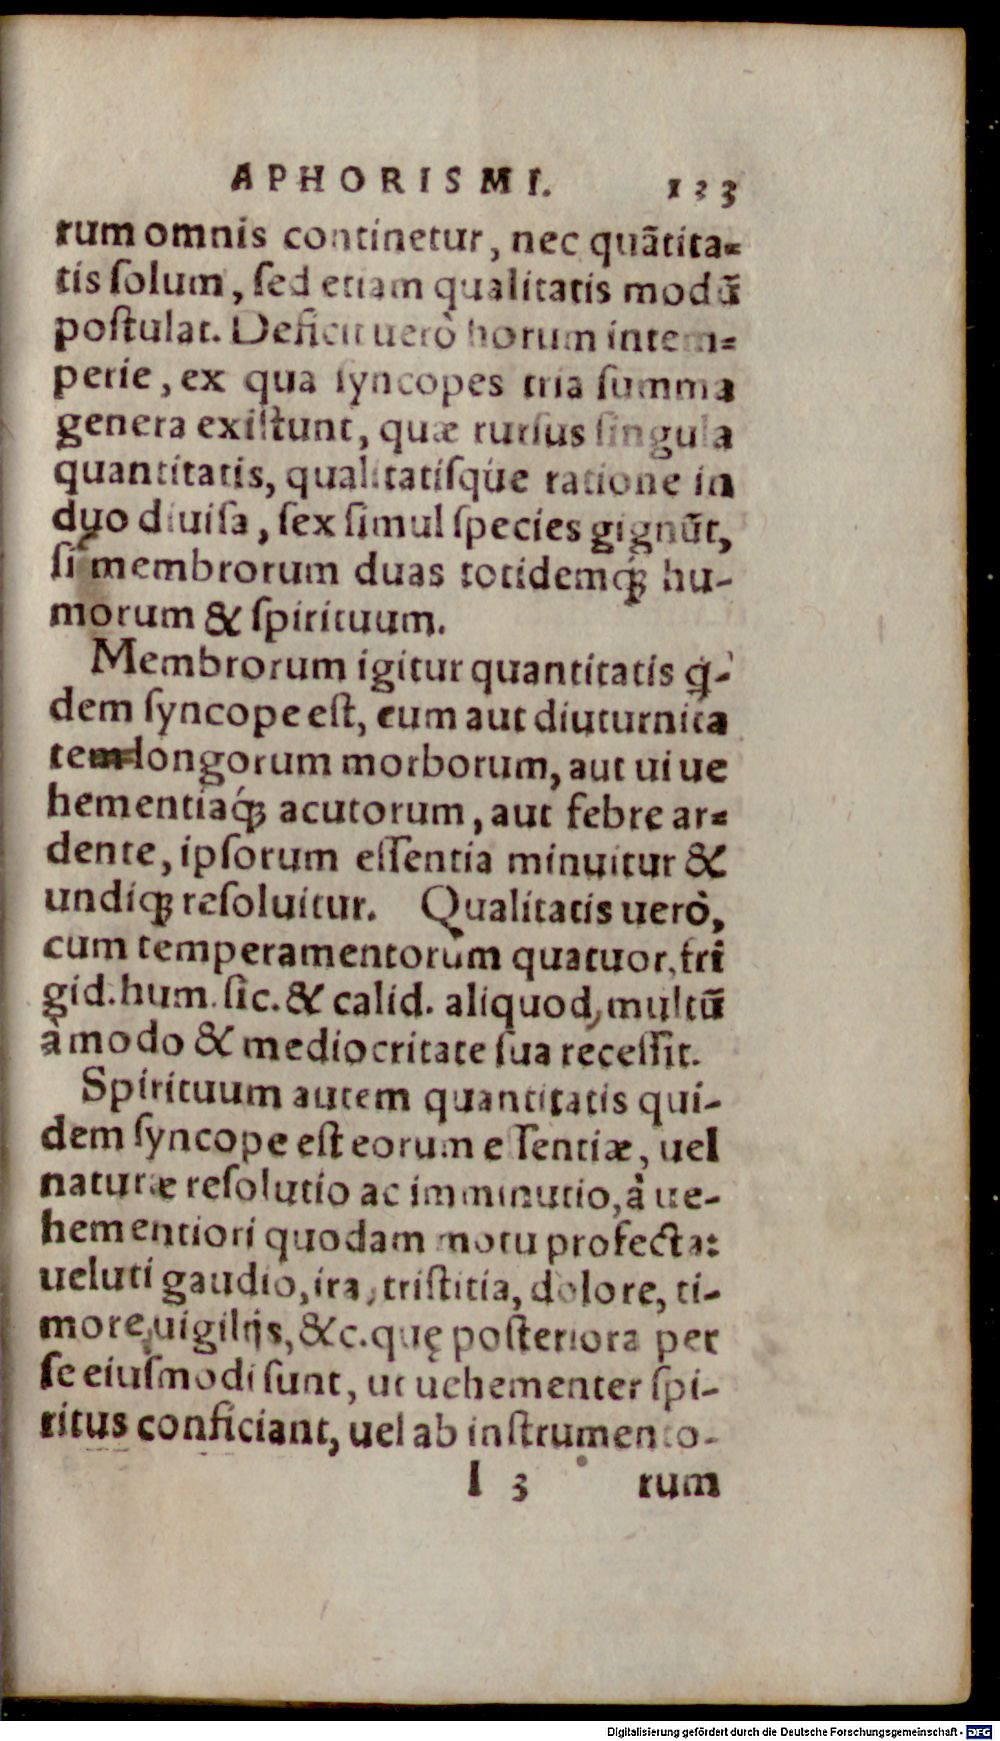 APHORISMI. 133
rum omnis continetur, nec quãtita-
tis ſolum, ſed etiam qualitatis modũ
poſtulat. Deficit uerò horum intem-
perie, ex qua ſyncopes tria ſumma
genera exiſtunt, quæ rurſus ſingula
quantitatis, qualitatiſq́ue ratione in
duo diuiſa, ſex ſimul ſpecies gignũt,
ſi membrorum duas totidemq́ꝫ hu-
morum & ſpirituum.
Membrorum igitur quantitatis q̓-
dem ſyncope eſt, cum aut diuturnita
tem longorum morborum, aut ui ue
hementiaq́ꝫ acutorum, aut febre ar-
dente, ipſorum eſſentia minuitur &
undiqꝫ reſoluitur. Qualitatis uerò,
cum temperamentorum quatuor, fri
gid. hum. ſic. & calid. aliquod, multũ
à modo & mediocritate ſua receſſit.
Spirituum autem quantitatis qui-
dem ſyncope eſt eorum eſſentiæ, uel
naturæ reſolutio ac imminutio, à ue-
hementiori quodam motu profecta:
ueluti gaudio, ira, triſtitia, dolore, ti-
more, uigilijs, &c. quę poſteriora per
ſe eiuſmodi ſunt, ut uehementer ſpi-
ritus conficiant, uel ab inſtrumento-
I 3 rum
Digitalisierung gefördert durch die Deutsche Forschungsgemeinschaft - DFG